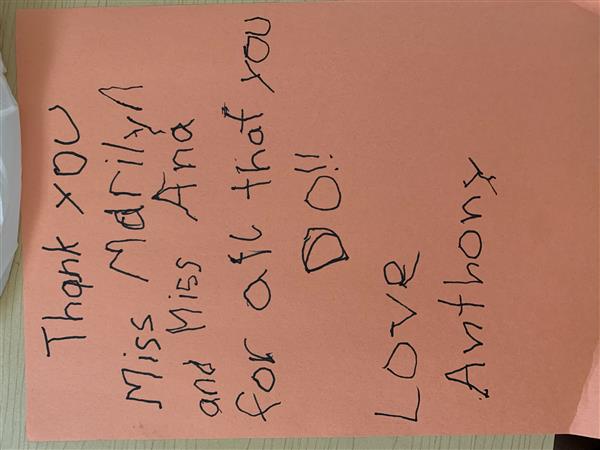 Thank you
Miss Marilyn
and Miss Ana
for all that you
DO!!
Love
Anthony